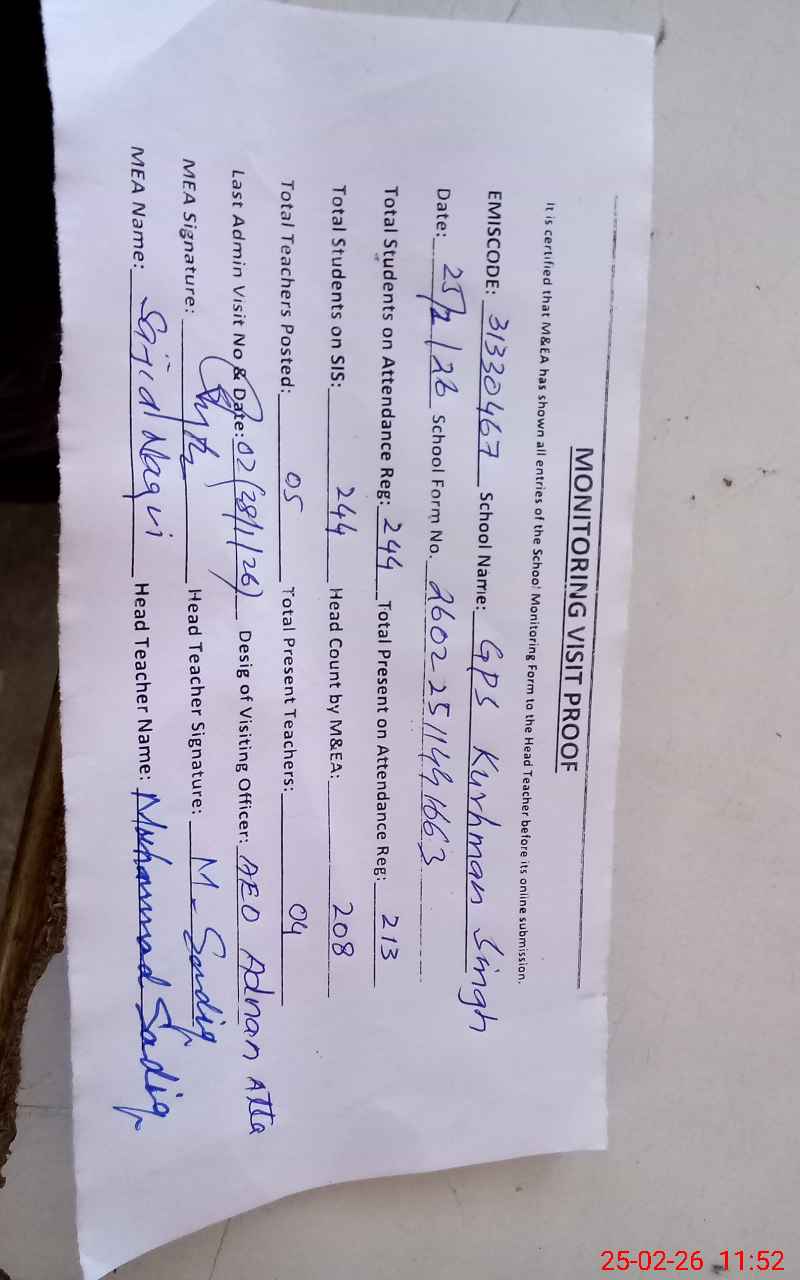 MONITORING VISIT PROOF
It is certified that M&EA has shown all entries of the School Monitoring Form to the Head Teacher before its online submission.
EMISCODE: 31330467 School Name: GPS Kurhman Singh
Date: 25/2/26 School Form No. 260225114491663
Total Students on Attendance Reg: 244 Total Present on Attendance Reg: 213
Total Students on SIS: 244 Head Count by M&EA: 208
Total Teachers Posted: 05 Total Present Teachers: 04
Last Admin Visit No & Date: 02(28/1/26) Desig of Visiting Officer: AEO Adnan Atta
MEA Signature: Head Teacher Signature: M. Sadiq
MEA Name: Sajid Naqvi Head Teacher Name: Muhammad Sadiq
25-02-26 11:52